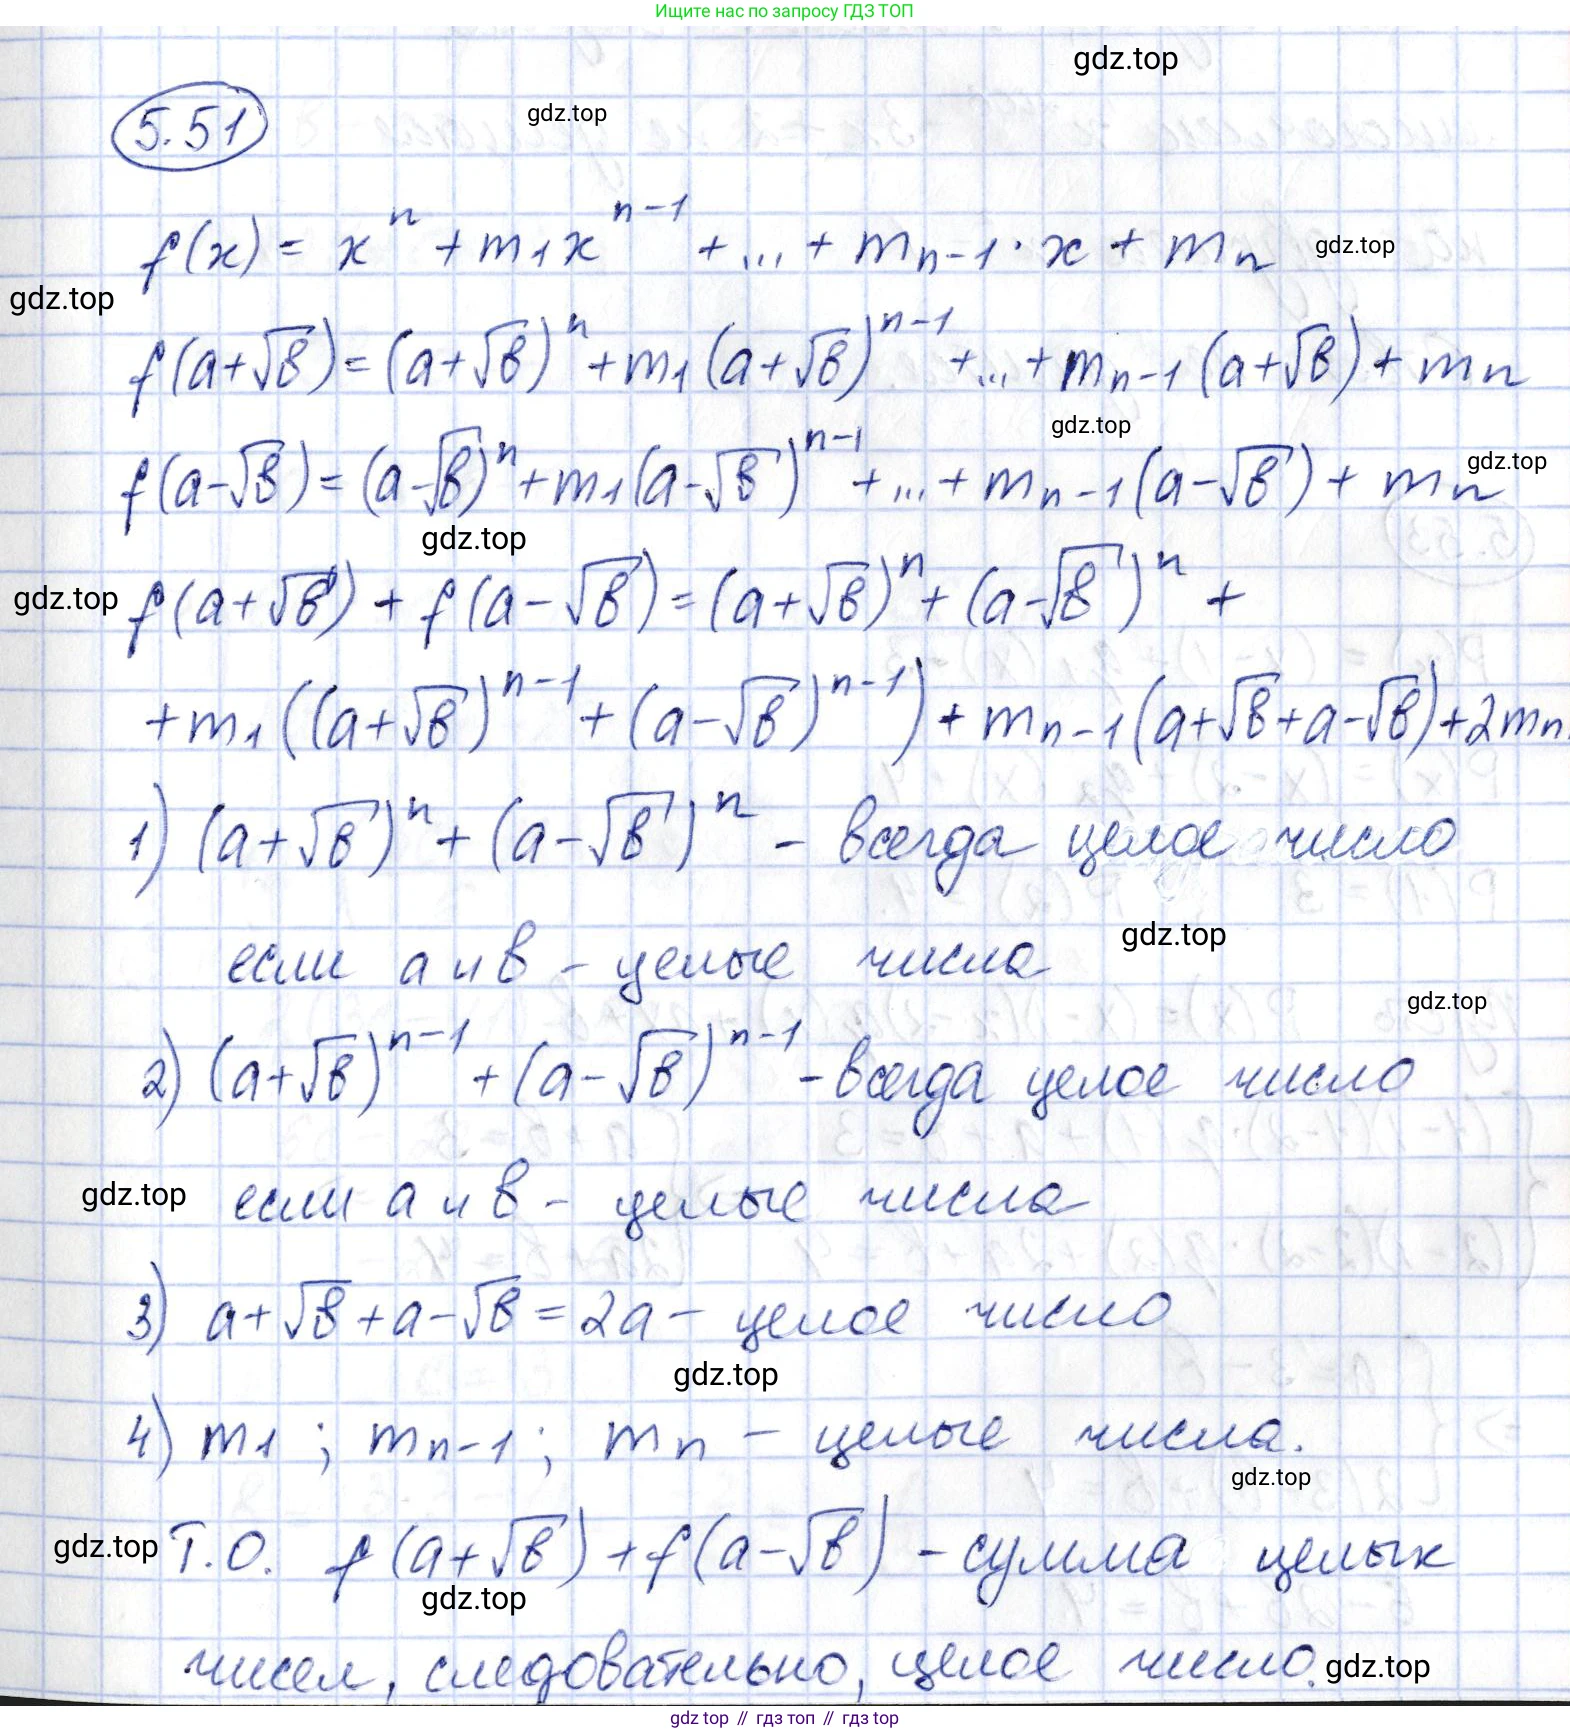 Ищите нас по запросу ГДЗ ТОП
gdz.top
5.51
gdz.top
f(x) = x^n + m₁x^(n-1) + ... + m_(n-1) · x + m_n
gdz.top
gdz.top
f(a+√в) = (a+√в)^n + m₁(a+√в)^(n-1) + ... + m_(n-1)(a+√в) + m_n
gdz.top
f(a-√в) = (a-√в)^n + m₁(a-√в)^(n-1) + ... + m_(n-1)(a-√в) + m_n
gdz.top
gdz.top
gdz.top
f(a+√в) + f(a-√в) = (a+√в)^n + (a-√в)^n +
+ m₁((a+√в)^(n-1) + (a-√в)^(n-1)) + m_(n-1)(a+√в+a-√в) + 2m_n.
1) (a+√в)^n + (a-√в)^n - всегда целое число
gdz.top
если a и в - целые числа
gdz.top
2) (a+√в)^(n-1) + (a-√в)^(n-1) - всегда целое число
gdz.top
если a и в - целые числа
3) a+√в+a-√в = 2a - целое число
gdz.top
4) m₁ ; m_(n-1) ; m_n - целые числа.
gdz.top
gdz.top
Т.О. f(a+√в) + f(a-√в) - сумма целых
gdz.top
чисел, следовательно, целое число.
gdz.top
gdz top // гдз топ // gdz top